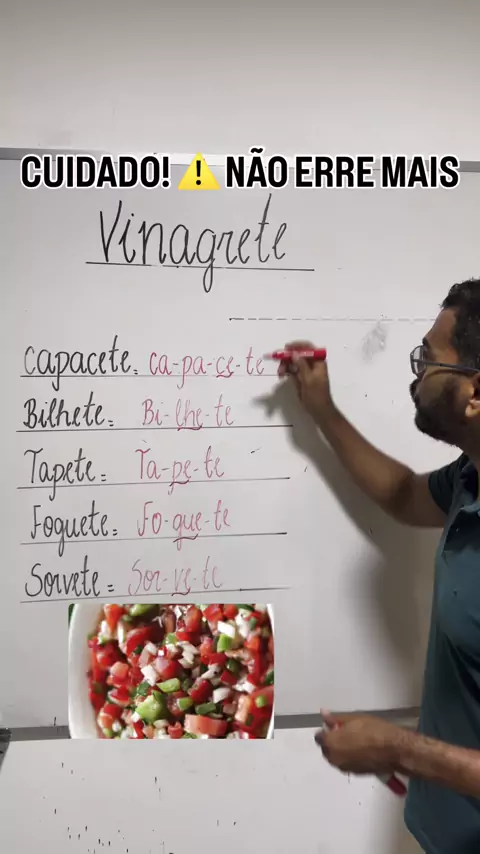 CUIDADO! ⚠️ NÃO ERRE MAIS
Vinagrete
Capacete = ca-pa-ce-te
Bilhete = Bi-lhe-te
Tapete = Ta-pe-te
Foguete = Fo-gue-te
Sorvete = Sor-ve-te